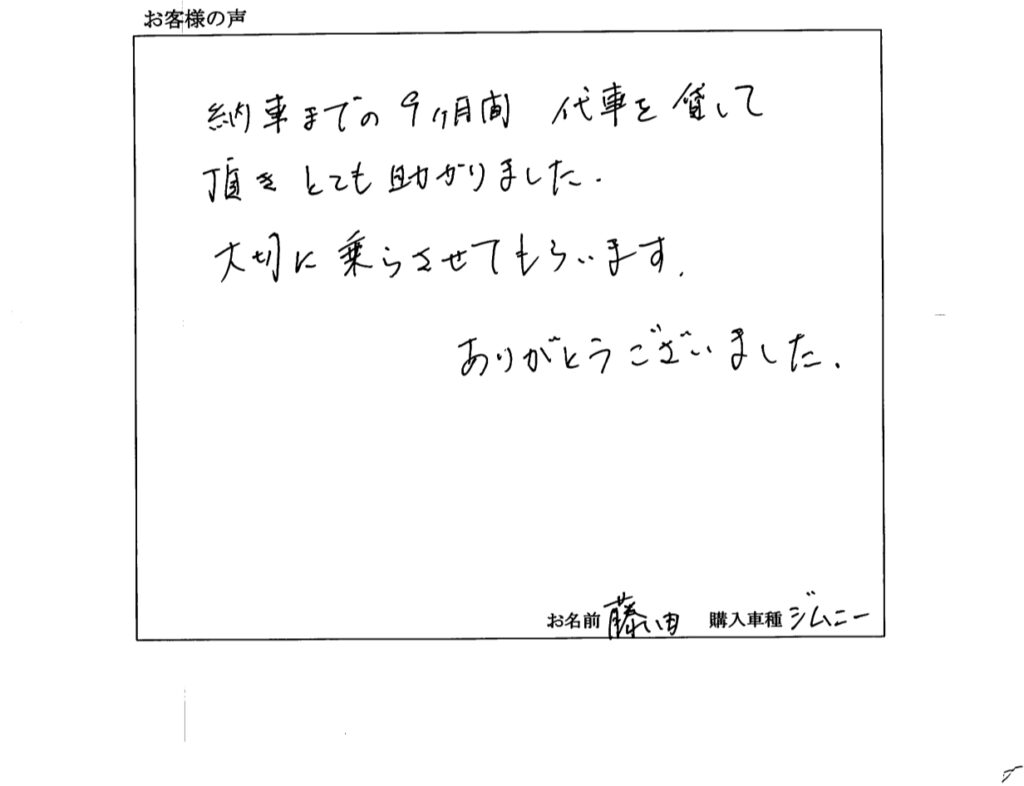 お客様の声
納車までの9ヶ月間 代車を貸して
頂きとても助かりました.
大切に乗らさせてもらいます.
ありがとうございました.
お名前 藤田 購入車種 ジムニー